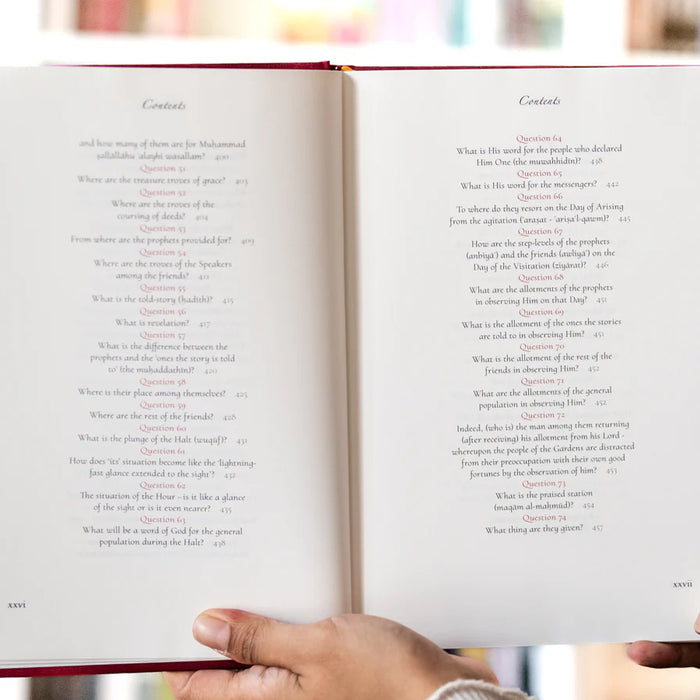 Contents
and how many of them are for Muḥammad
ṣallallāhu ʿalayhi wasallam? 400
Question 51
Where are the treasure troves of grace? 403
Question 52
Where are the troves of the
coursing of deeds? 404
Question 53
From where are the prophets provided for? 409
Question 54
Where are the troves of the Speakers
among the friends? 412
Question 55
What is the told-story (ḥadīth)? 415
Question 56
What is revelation? 417
Question 57
What is the difference between the
prophets and the 'ones the story is told
to' (the muḥaddathīn)? 420
Question 58
Where is their place among themselves? 425
Question 59
Where are the rest of the friends? 428
Question 60
What is the plunge of the Halt (wuqūf)? 431
Question 61
How does 'its' situation become like the 'lightning-
fast glance extended to the sight'? 432
Question 62
The situation of the Hour - is it like a glance
of the sight or is it even nearer? 435
Question 63
What will be a word of God for the general
population during the Halt? 438
xxvi
Contents
Question 64
What is His word for the people who declared
Him One (the muwaḥḥidīn)? 438
Question 65
What is His word for the messengers? 442
Question 66
To where do they resort on the Day of Arising
from the agitation (ʿaraṣat - ʿariṣa'l-qawm)? 445
Question 67
How are the step-levels of the prophets
(anbiyāʾ) and the friends (awliyāʾ) on the
Day of the Visitation (ziyārat)? 446
Question 68
What are the allotments of the prophets
in observing Him on that Day? 451
Question 69
What is the allotment of the ones the stories
are told to in observing Him? 451
Question 70
What is the allotment of the rest of the
friends in observing Him? 452
Question 71
What are the allotments of the general
population in observing Him? 452
Question 72
Indeed, (who is) the man among them returning
(after receiving) his allotment from his Lord -
whereupon the people of the Gardens are distracted
from their preoccupation with their own good
fortunes by the observation of him? 453
Question 73
What is the praised station
(maqām al-maḥmūd)? 454
Question 74
What thing are they given? 457
xxvii